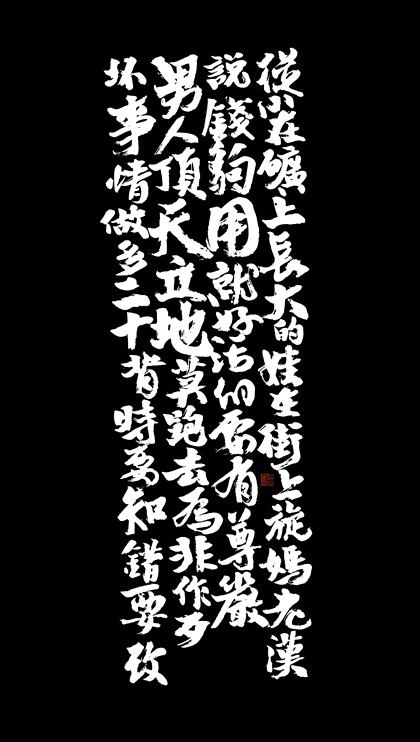 從小在礦上長大的娃在街上旋媽老漢
說錢夠用就好活得要有尊嚴
男人頂天立地莫跑去為非作歹
坏事情做多二十背時要知錯要改